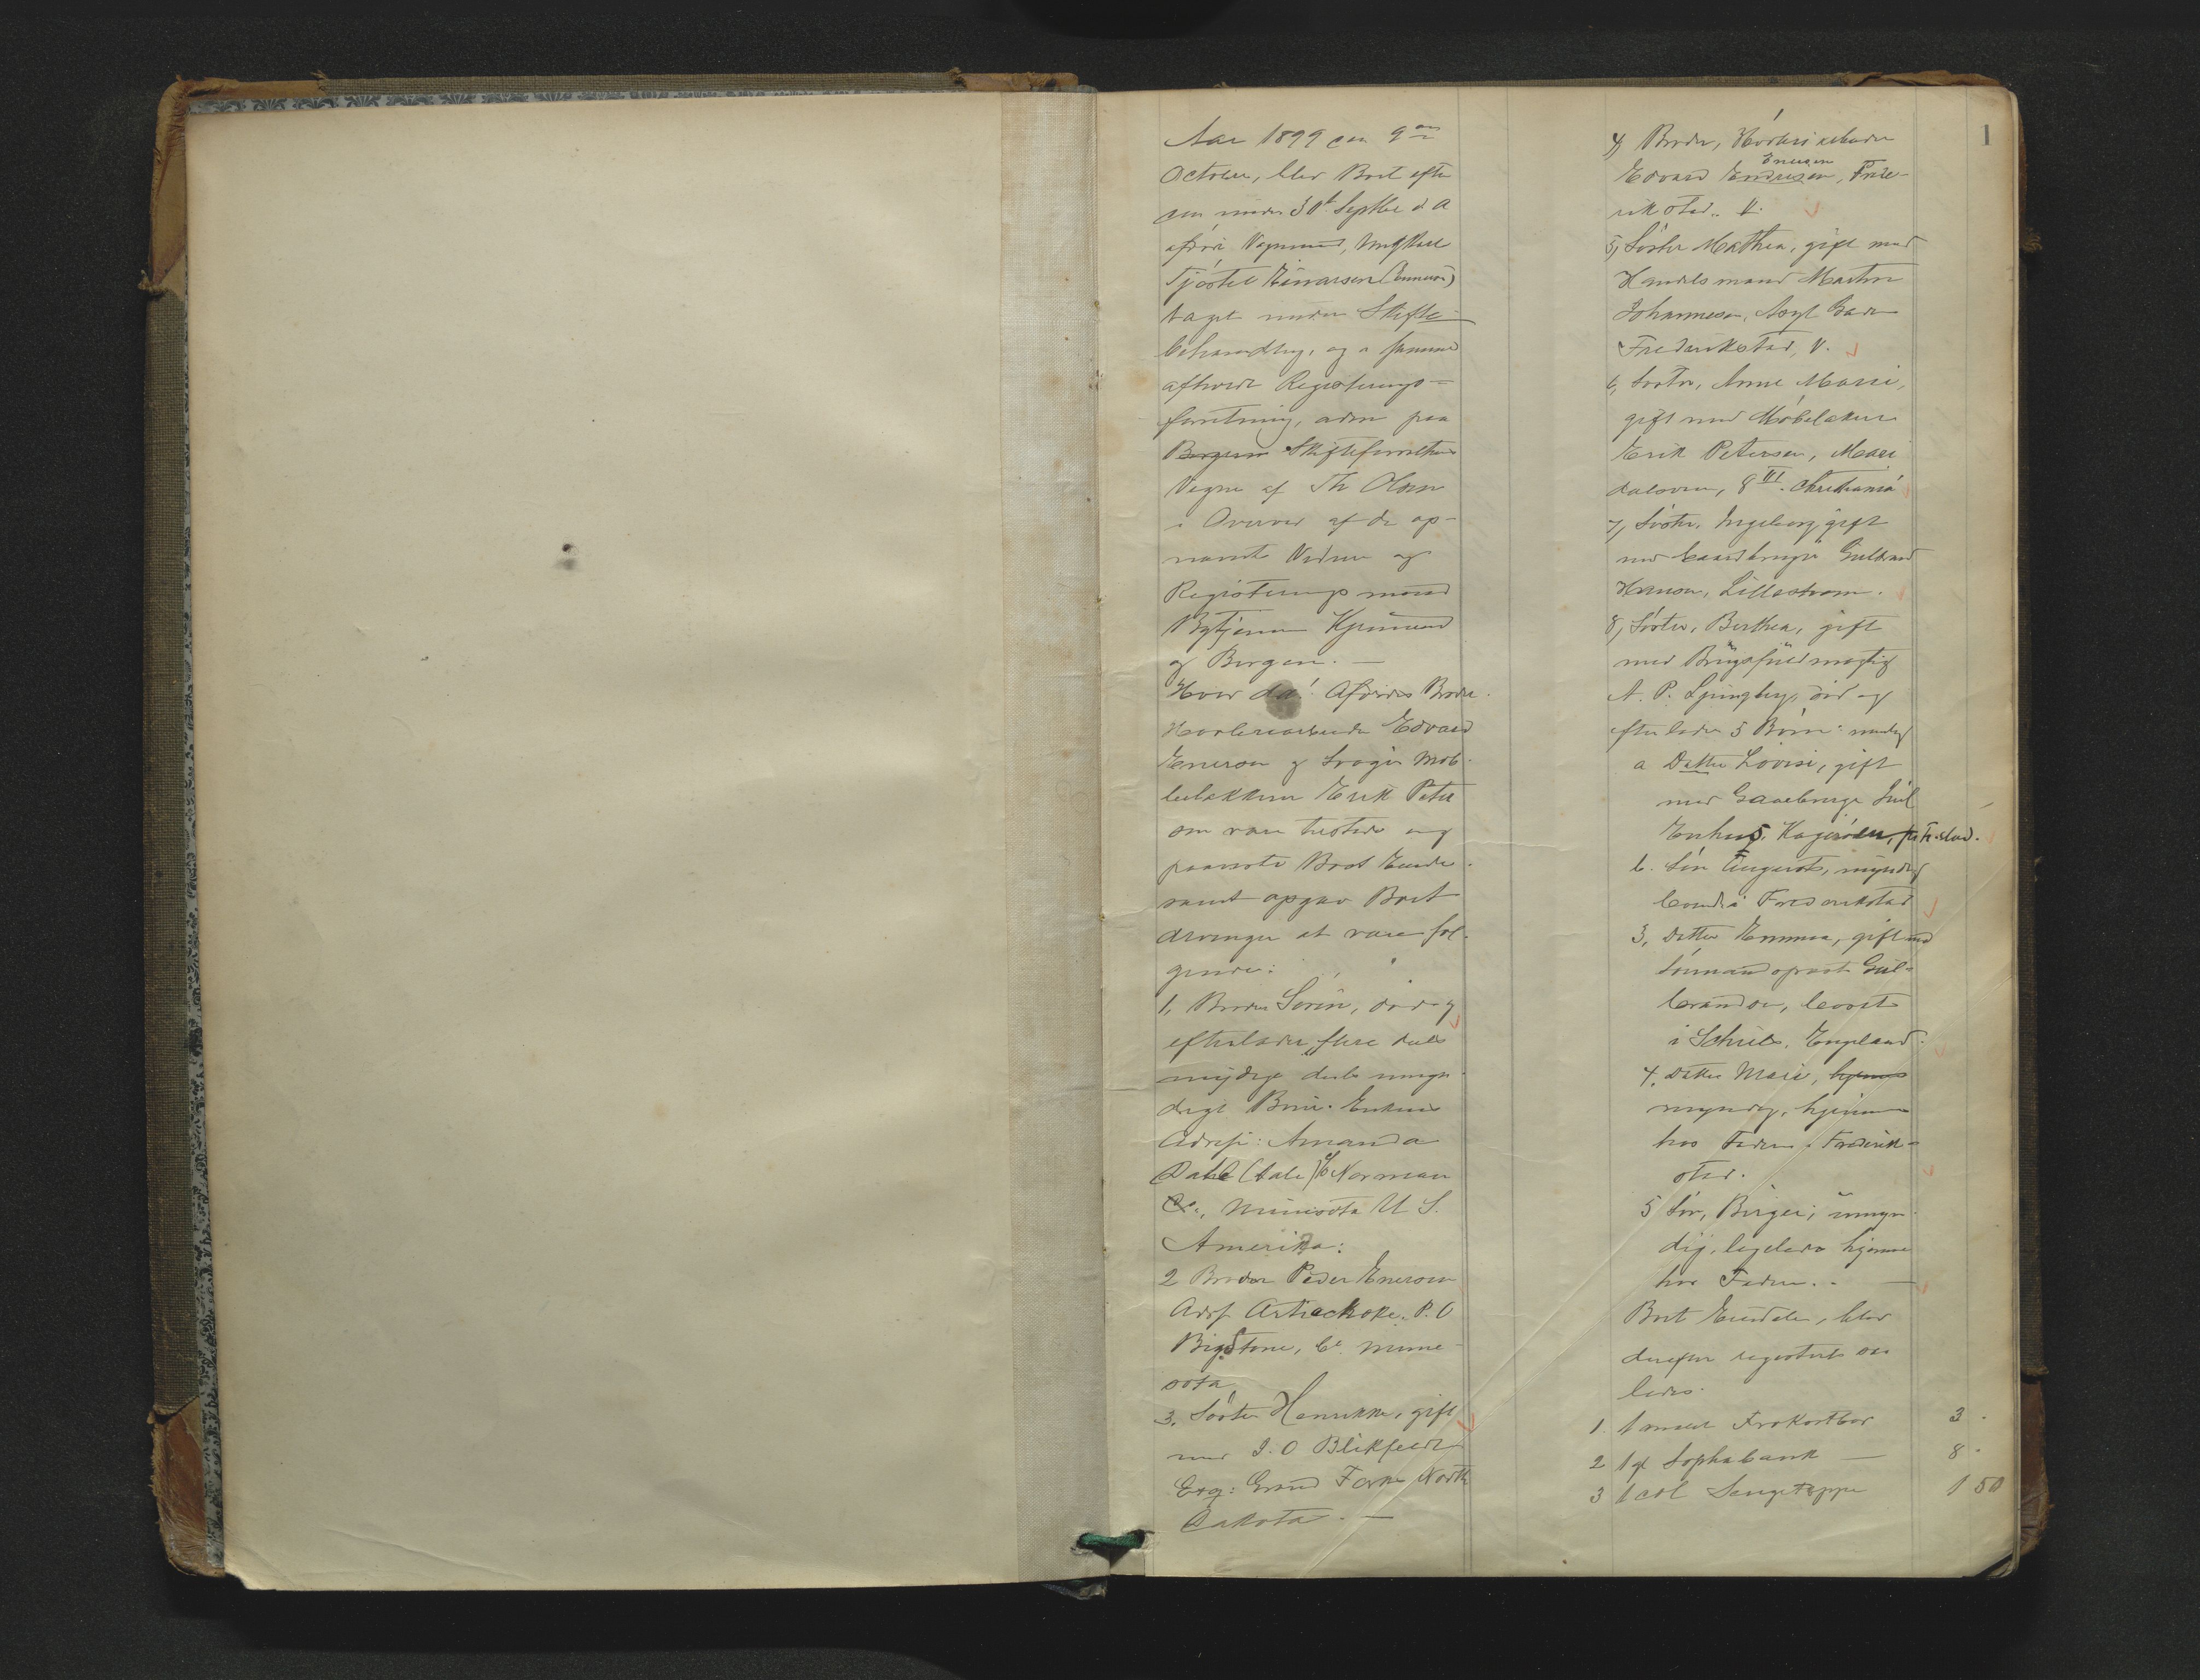 Aar 1899 den 9de
October, blev Boet efter
den under 30te Septbr d A
afdøde Vognmand, Ungkarl
Tjøstel Einarsen (Enersen)
taget under Skifte-
behandling, og i samme
afholdt Registrerings-
forretning, adm paa
Skifteforvalterens
Vegne af Th Olsen
i Overvær af de op-
nævnte Vidner og
Registreringsmænd
Bytjener
og Bergen. —
Hvor da! Afdødes Broder
Høvleriarbeider Edvard
Enersen og Svoger Møb-
bellakkerer Erik Peter
som vare tilstede og
paaviste Boet Eiendele
samt opgav Boet
Arvinger at være føl-
gende:
1, Broder Sørin, død og
efterlader flere dels
myndige dels umyn-
dige Børn. Enkens
Adresse: Amanda
Dahl (Dale) Norman
Co., Minisota U S.
Amerika:
2 Broder Peder Enersen
Adrs. Artiechoke. P. O
BigStone, Co. Minne-
sota
3. Søster Henrikke, gift
med I. O Blikfeldt
Esq: Grand Forks North
Dakota. —
1
4) Broder, Høvleriarbeider
Enersen
Edvard Endresen, Frede-
rikstad.. V.
5, Søster Mathea, gift med
Handelsmand Martin
Johannesen, Asyl Gaden
Frederikstad, V.
6, Søster, Anne Marie,
gift med Møbellakerer
Erik Petersen, Mari
dalsveien, 8 III. Christiania
7, Søster, Ingeborg gift
med Gaardbruger Gulbrand
Hansen, Lillestrøm.
8, Søster, Berthea, gift
med Brugsfuldmægtig
A. P. Ljungberg, død og
efterlader 5 Børn: nemlig
a Datter Lovise, gift
med Gaardbruger
Fr.stad.
b. Søn August, myndig
boende i Frederikstad
3, Datter Emma, gift med
Sømand Gul-
brandsen, bosat
i Schiels, England.
4, Datter Marie, hjemme
myndig, hjemme
hos Faderen i Frederik-
stad.
5 Søn, Birger, umyn-
dig, ligeledes hjemme
hos Faderen.. —
Boet Eiendele, blev
derefter registreret saa
ledes.
1. 1 malet Frokostbor 3 .
2 1 gl Sophabænk — 8 .
3 1 col Sengetæppe 1 50